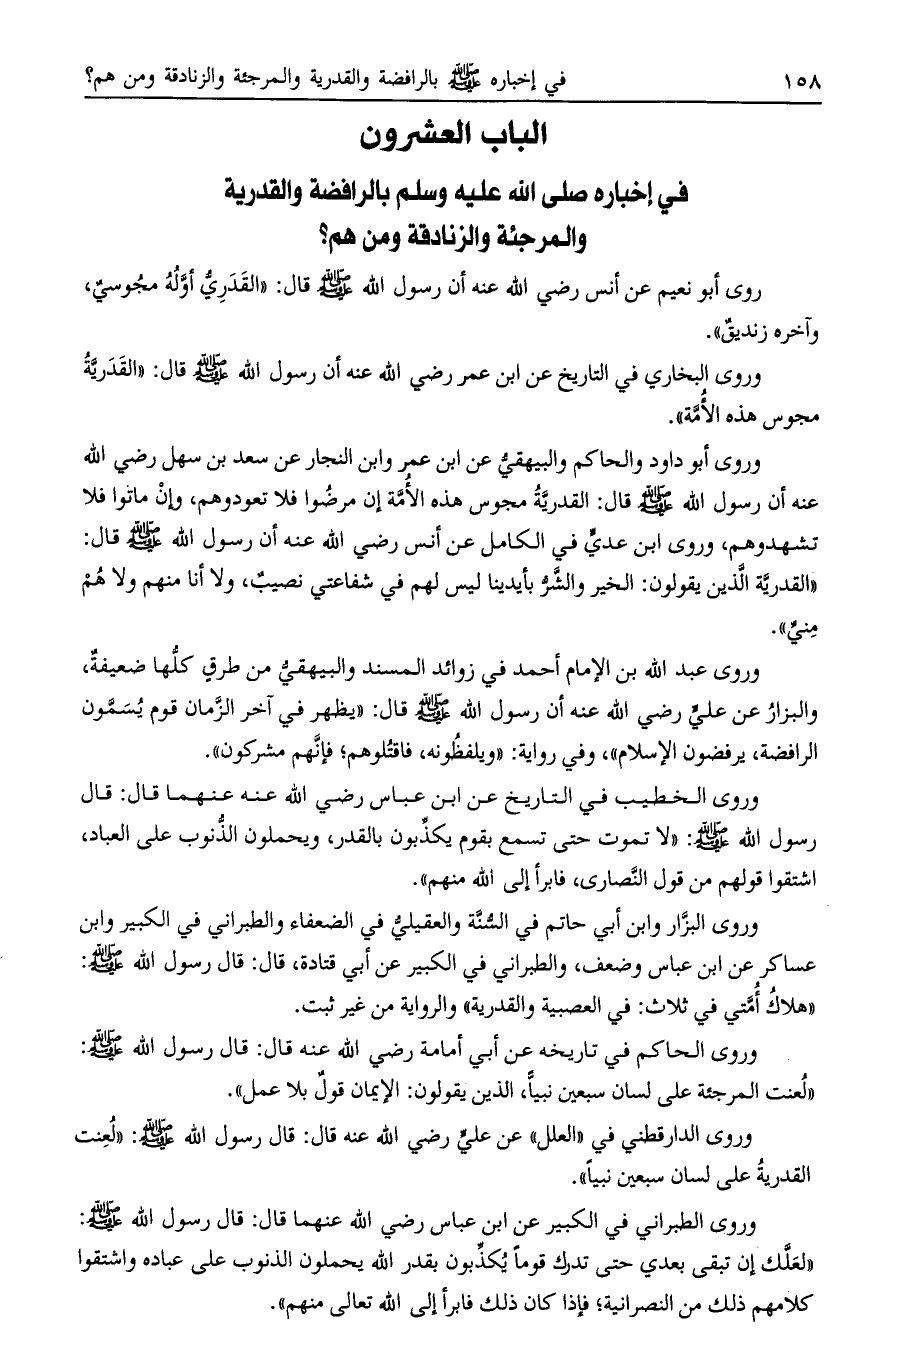 ١٥٨ في إخباره ﷺ بالرافضة والقدرية والمرجئة والزنادقة ومن هم؟
الباب العشرون
في إخباره صلى الله عليه وسلم بالرافضة والقدرية
والمرجئة والزنادقة ومن هم؟
روى أبو نعيم عن أنس رضي الله عنه أن رسول الله ﷺ قال: «القَدَرِيُّ أوَّلُهُ مجُوسيٌ،
وآخره زنديقٌ».
وروى البخاري في التاريخ عن ابن عمر رضي الله عنه أن رسول الله ﷺ قال: «القَدَريَّةُ
مجوس هذه الأُمَّة».
وروى أبو داود والحاكم والبيهقيُّ عن ابن عمر وابن النجار عن سعد بن سهل رضي الله
عنه أن رسول الله ﷺ قال: القدريَّةُ مجوس هذه الأُمَّة إن مرضُوا فلا تعودوهم، وإنْ ماتُوا فلا
تشهدوهم، وروى ابن عديٍّ في الكامل عن أنس رضي الله عنه أن رسول الله ﷺ قال:
«القدريَّة الَّذين يقولون: الخير والشَّرُّ بأيدينا ليس لهم في شفاعتي نصيبٌ، ولا أنا منهم ولا هُمْ
مِنيِّ».
وروى عبد الله بن الإمام أحمد في زوائد المسند والبيهقيُّ من طرقٍ كلُّها ضعيفةٌ،
والبزارُ عن عليٍّ رضي الله عنه أن رسول الله ﷺ قال: «يظهر في آخر الزَّمان قوم يُسَمَّون
الرافضة، يرفضون الإسلام»، وفي رواية: «ويلفظُونه، فاقتُلوهم؛ فإنَّهم مشركون».
وروى الخطيب في التاريخ عن ابن عباس رضي الله عنه عنهما قال: قال
رسول الله ﷺ: «لا تموت حتى تسمع بقوم يكذِّبون بالقدر، ويحملون الذُّنوب على العباد،
اشتقوا قولهم من قول النَّصارى، فابرأ إلى الله منهم».
وروى البزَّار وابن أبي حاتم في السُّنَّة والعقيليُّ في الضعفاء والطبراني في الكبير وابن
عساكر عن ابن عباس وضعف، والطبراني في الكبير عن أبي قتادة، قال: قال رسول الله ﷺ:
«هلاكُ أُمَّتي في ثلاث: في العصبية والقدرية» والرواية من غير ثبت.
وروى الحاكم في تاريخه عن أبي أمامة رضي الله عنه قال: قال رسول الله ﷺ:
«لُعنت المرجئة على لسان سبعين نبياً، الذين يقولون: الإيمان قولٌ بلا عمل».
وروى الدارقطني في «العلل» عن عليٍّ رضي الله عنه قال: قال رسول الله ﷺ: «لُعِنت
القدريةُ على لسان سبعين نبياً».
وروى الطبراني في الكبير عن ابن عباس رضي الله عنهما قال: قال رسول الله ﷺ:
«لعَلَّك إن تبقى بعدي حتى تدرك قوماً يُكذِّبون بقدر الله يحملون الذنوب على عباده واشتقوا
كلامهم ذلك من النصرانية؛ فإذا كان ذلك فابرأ إلى الله تعالى منهم».